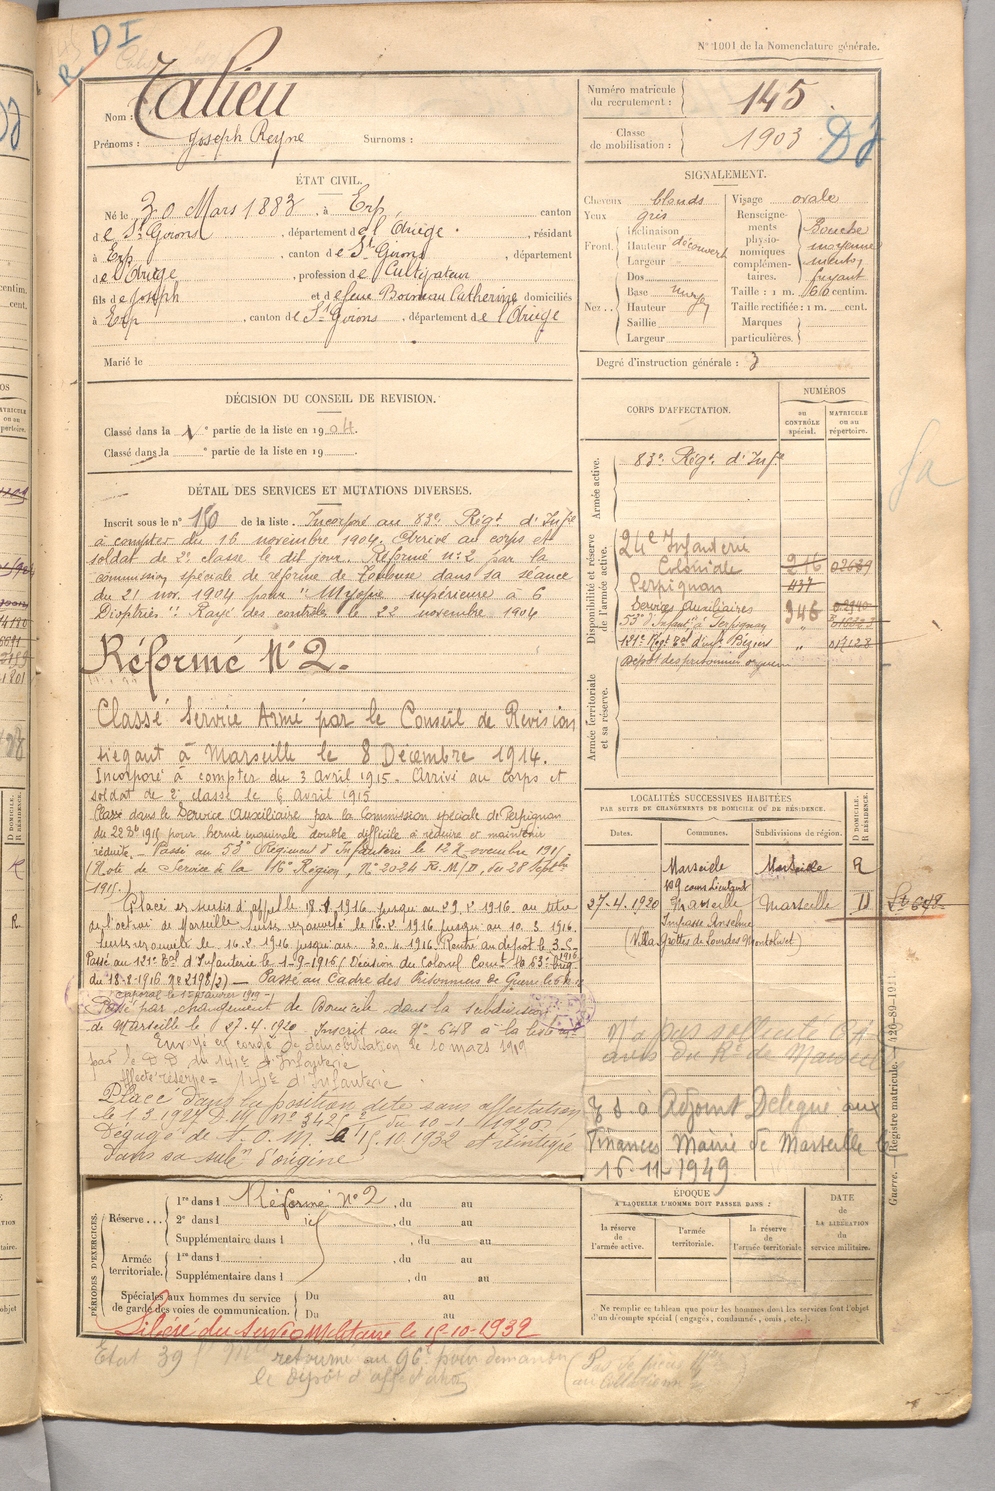 R. DI
N° 1001 de la Nomenclature générale.
Nom : Talieu
Prénoms : Joseph Reyne Surnoms :
Numéro matricule du recrutement : 145
Classe de mobilisation : 1903
ÉTAT CIVIL.
Né le 30 Mars 1883, à Erp, canton
de St Girons, département de l'Ariège, résidant
à Erp, canton de St Girons, département
de l'Ariège, profession de Cultivateur
fils de Joseph et de feue Catherine domiciliés
à Erp, canton de St Girons, département de l'Ariège
Marié le
SIGNALEMENT.
Cheveux blonds Visage ovale
Yeux gris
Front. Inclinaison
Hauteur découvert
Largeur
Nez.. Dos
Base moy
Hauteur
Saillie
Largeur
Renseignements physionomiques complémentaires. Bouche moyenne menton fuyant
Taille : 1 m. 66 centim.
Taille rectifiée : 1 m. cent.
Marques particulières.
Degré d'instruction générale : 3
DÉCISION DU CONSEIL DE REVISION.
Classé dans la 1e partie de la liste en 1904.
Classé dans la e partie de la liste en 19
CORPS D'AFFECTATION.
NUMÉROS
au CONTRÔLE spécial.
MATRICULE ou au répertoire.
Armée active.
83e Régt d'Infie
Disponibilité et réserve de l'armée active.
24e Infanterie
Coloniale 216 02689
Perpignan 437
Services Auxiliaires 946
53e d'Infant. à Perpignan "
121e Régt d'Inf. Béziers " 019128
Dépôt des prisonniers
Armée territoriale et sa réserve.
DÉTAIL DES SERVICES ET MUTATIONS DIVERSES.
Inscrit sous le n° 150 de la liste. Incorporé au 83e Régt d'Infie
à compter du 16 novembre 1904. Arrivé au corps et
soldat de 2e classe le dit jour. Réformé n° 2 par la
commission spéciale de réforme de Toulouse dans sa séance
du 21 nov. 1904 pour "Myopie supérieure à 6
Dioptries". Rayé des contrôles le 22 novembre 1904
Réformé N°2.
Classé Service Armé par le Conseil de Revision
siégant à Marseille le 8 Décembre 1914.
Incorporé à compter du 3 Avril 1915. Arrivé au corps et
soldat de 2e classe le 6 Avril 1915
Classé dans le Service Auxiliaire par la Commission spéciale de Perpignan
du 22 1915 pour hernie inguinale double difficile à réduire et maintenir
réduite. - Passé au 53e Régiment d'Infanterie le 12 Novembre 191
(Note de Service de la 16e Région, N° 2024 R.M/D, du 28 Septbre
1915.)
Placé en sursis d'appel le 18.1.1916 jusqu'au 29.2.1916 au titre
de l'octroi de Marseille. Sursis renouvelé le 16.2.1916 jusqu'au 10.3.1916.
Sursis renouvelé le 16.2.1916 jusqu'au 30.4.1916. Rentré au dépôt le 3.5.1916
Passé au 121e d'Infanterie le 1-9-1916 (Décision du Colonel Comt la 63e Brig
du 18-8-1916 n° 2198/2) — Passé au Cadre des Prisonniers de Guerre le
Caporal le 1er janvier 1919
Passé par changement de Domicile dans la subdivision
de Marseille le 27.4.1920. Inscrit au N° 648 à la liste
Envoyé en congé de démobilisation le 10 mars 1919
par le D.D du 141e d'Infanterie
Affecté réserve = 141e d'Infanterie
Placé dans la position dite sans affectation
le 1.3.1927
Dégagé de T.O.M. le 15.10.1932 et réintégré
dans sa subon d'origine
LOCALITÉS SUCCESSIVES HABITÉES
PAR SUITE DE CHANGEMENTS DE DOMICILE OU DE RÉSIDENCE.
Dates. Communes. Subdivisions de région. D. DOMICILE. R. RÉSIDENCE.
Marseille Marseille R
109 cours Lieutaud
27.4.1920 Marseille Marseille D
Impasse Anselme
(Villa Grottes de Lourdes Montolivet)
N'a pas sollicité
avis du Rt de Marseille
Adjoint Délégué aux
Finances Mairie de Marseille
16-11-1949
PÉRIODES D'EXERCICES.
Réserve... 1re dans l Réformé N°2, du au
2e dans l id, du au
Supplémentaire dans l , du au
Armée territoriale. 1re dans l , du au
Supplémentaire dans l , du au
Spéciales aux hommes du service de garde des voies de communication. Du au
Du au
Libéré du Service Militaire le 15-10-1932
ÉPOQUE
À LAQUELLE L'HOMME DOIT PASSER DANS :
la réserve de l'armée active.
l'armée territoriale.
la réserve de l'armée territoriale
DATE de LA LIBÉRATION du service militaire.
Ne remplir ce tableau que pour les hommes dont les services font l'objet
d'un décompte spécial (engagés, condamnés, omis, etc.).
Guerre. — (Registre matricule.)
Etat 39 retourné au 96e pour demander
le dépôt d'affectation